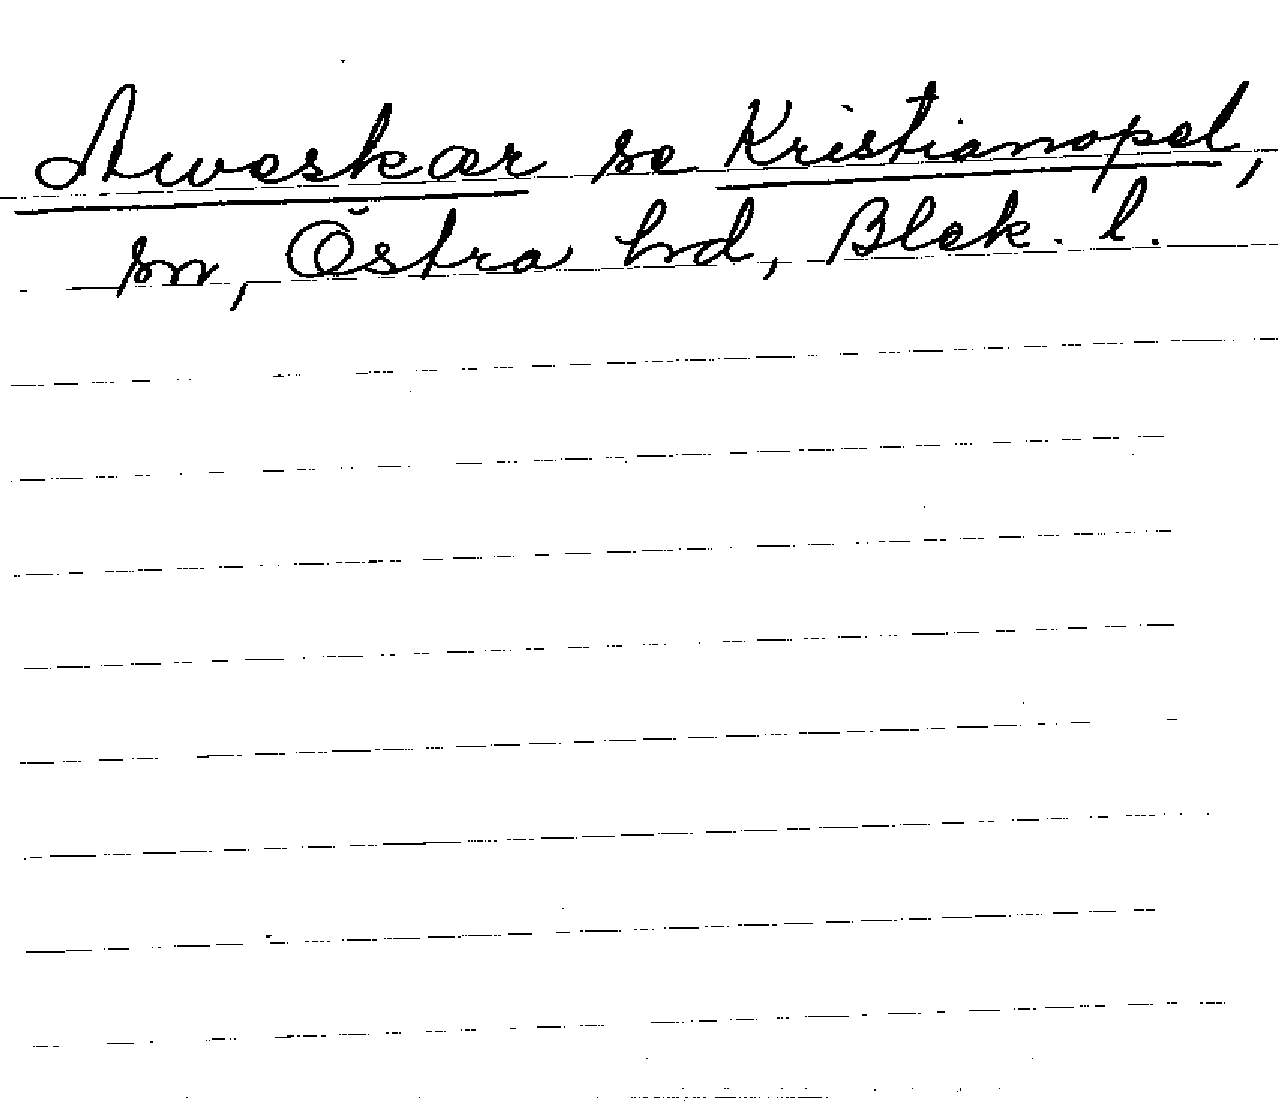 Awaskær se Kristianopel,
sn, Östra hd, Blek. l.